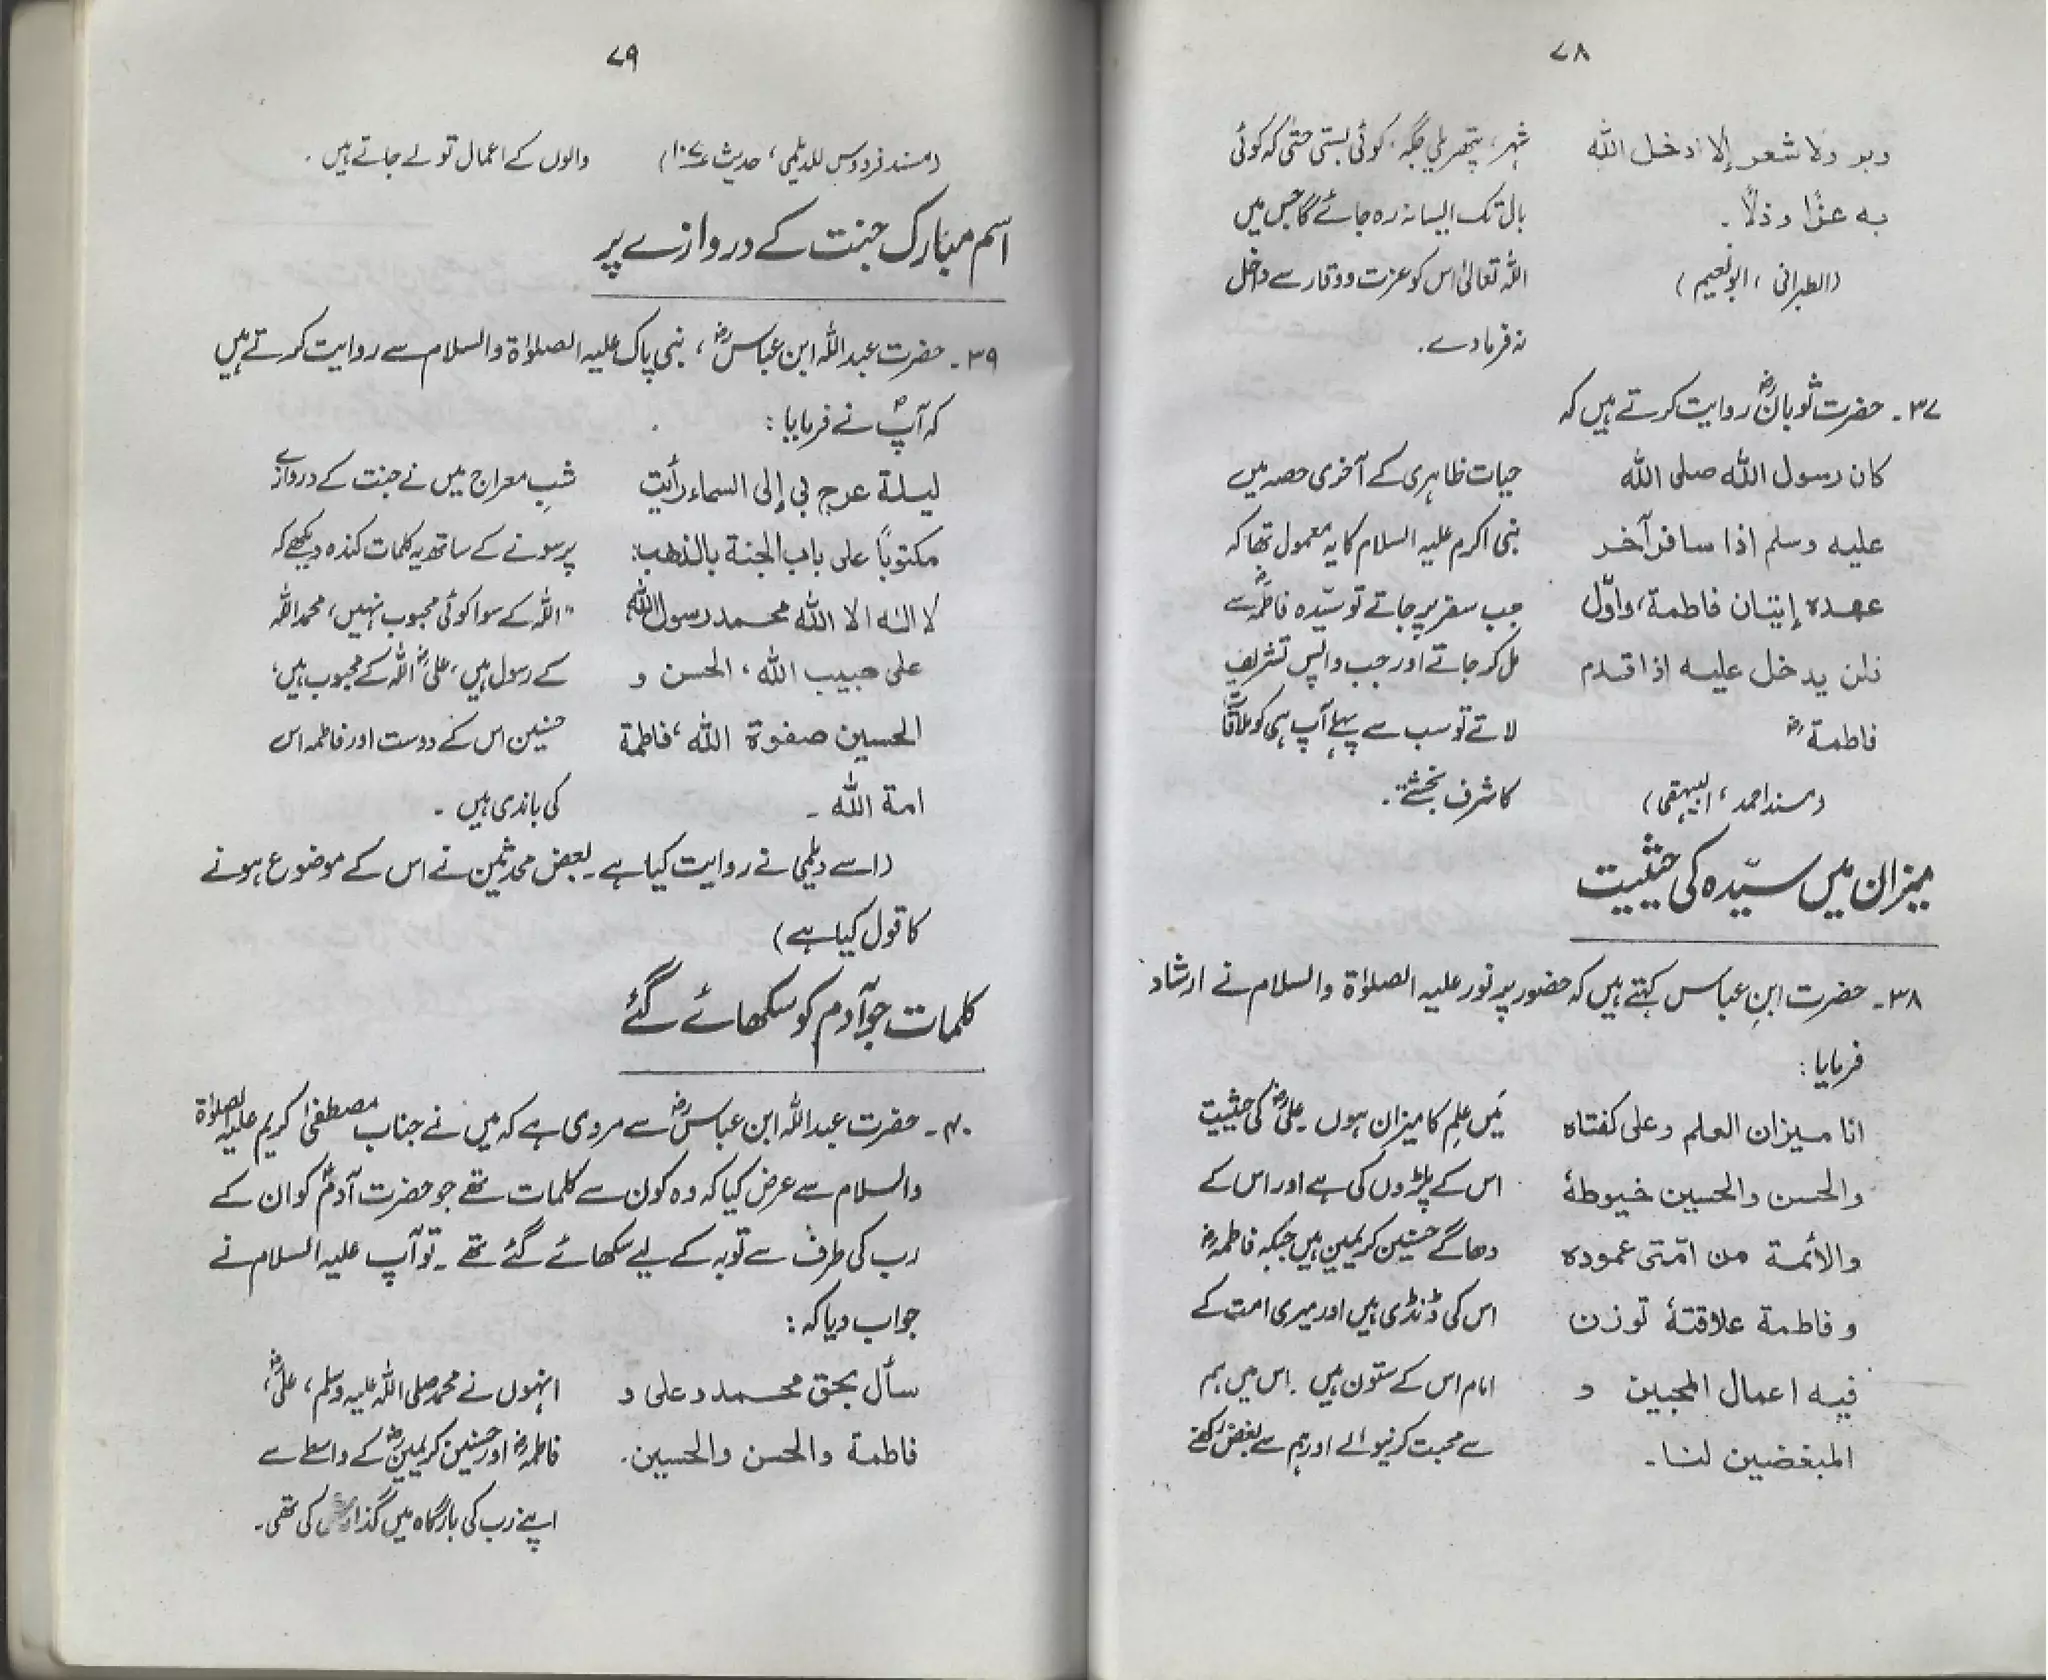 ۷۸
وبر ولا شعر إلا ادخل الله
شہر، پتھریلی جگہ، کوئی بستی حتیٰ کہ کوئی
به عزًا وذلًا۔
بال تک ایسا نہ رہ جائے گا جس میں
(الطبرانی، ابو نعیم)
اللہ تعالیٰ اس کو عزت ووقار سے داخل
نہ فرمادے۔
۳۷۔ حضرت ثوبانؓ روایت کرتے ہیں کہ
كان رسول الله صلى الله
حیات ظاہری کے آخری حصہ میں
عليه وسلم اذا سافر آخر
نبی اکرم علیہ السلام کا یہ معمول تھا کہ
عهده إتيان فاطمة، واوّل
جب سفر پر جاتے تو سیّدہ فاطمہؓ سے
من يدخل عليه اذا قدم
مل کر جاتے اور جب واپس تشریف
فاطمةؓ
لاتے تو سب سے پہلے آپ ہی کو ملاقات
(مسند احمد، البیہقی)
کا شرف بخشتے۔
میزان میں سیّدہ کی حیثیت
۳۸۔ حضرت ابنِ عباس کہتے ہیں کہ حضور پر نور علیہ الصلوٰۃ والسلام نے ارشاد
فرمایا:
انا ميزان العلم وعلى كفتاه
مَیں علم کا میزان ہوں۔ علیؓ کی حیثیت
والحسن والحسين خيوطهٔ
اس کے پلڑوں کی ہے اور اس کے
والأئمة من امّتى عموده
دھاگے حسنین کریمین ہیں جبکہ فاطمہؓ
و فاطمة علاقتهٔ توزن
اس کی ڈنڈی ہیں اور میری امت کے
فيه اعمال المحبين و
امام اس کے ستون ہیں۔ اس میں ہم
المبغضين لنا۔
سے محبت کرنیوالے اور ہم سے بغض رکھنے
۷۹
(مسند فردوس للدیلمی، حدیث ۱۰۷)
والوں کے اعمال تولے جاتے ہیں۔
اسم مبارک جنت کے دروازے پر
۳۹۔ حضرت عبداللہ ابن عباسؓ، نبی پاک علیہ الصلوٰۃ والسلام سے روایت کرتے ہیں
کہ آپؐ نے فرمایا:
ليلة عرج بي إلى السماء رأيت
شبِ معراج میں نے جنت کے دروازے
مكتوبًا على باب الجنة بالذهب:
پر سونے کے ساتھ یہ کلمات کندہ دیکھے کہ
لا اله الا الله محمد رسول الله
"اللہ کے سوا کوئی محبوب نہیں، محمد اللہ
على حبيب الله، الحسن و
کے رسول ہیں، علیؓ اللہ کے محبوب ہیں،
الحسين صفوة الله، فاطمة
حسنین اس کے دوست اور فاطمہ اس
امة الله۔
کی باندی ہیں۔
(اسے دیلمی نے روایت کیا ہے۔ بعض محدثین نے اس کے موضوع ہونے
کا قول کیا ہے)
کلمات جو آدم کو سکھائے گئے
۴۰۔ حضرت عبداللہ ابن عباسؓ سے مروی ہے کہ میں نے جناب مصطفیٰ کریم علیہ الصلوٰۃ
والسلام سے عرض کیا کہ وہ کون سے کلمات تھے جو حضرت آدمؑ کو ان کے
رب کی طرف سے توبہ کے لیے سکھائے گئے تھے۔ تو آپ علیہ السلام نے
جواب دیا کہ:
سأل بحق محمد وعلى و
انہوں نے محمد صلی اللہ علیہ وسلم، علیؓ،
فاطمة والحسن والحسين.
فاطمہؓ اور حسنین کریمینؓ کے واسطے سے
اپنے رب کی بارگاہ میں گذارش کی تھی۔